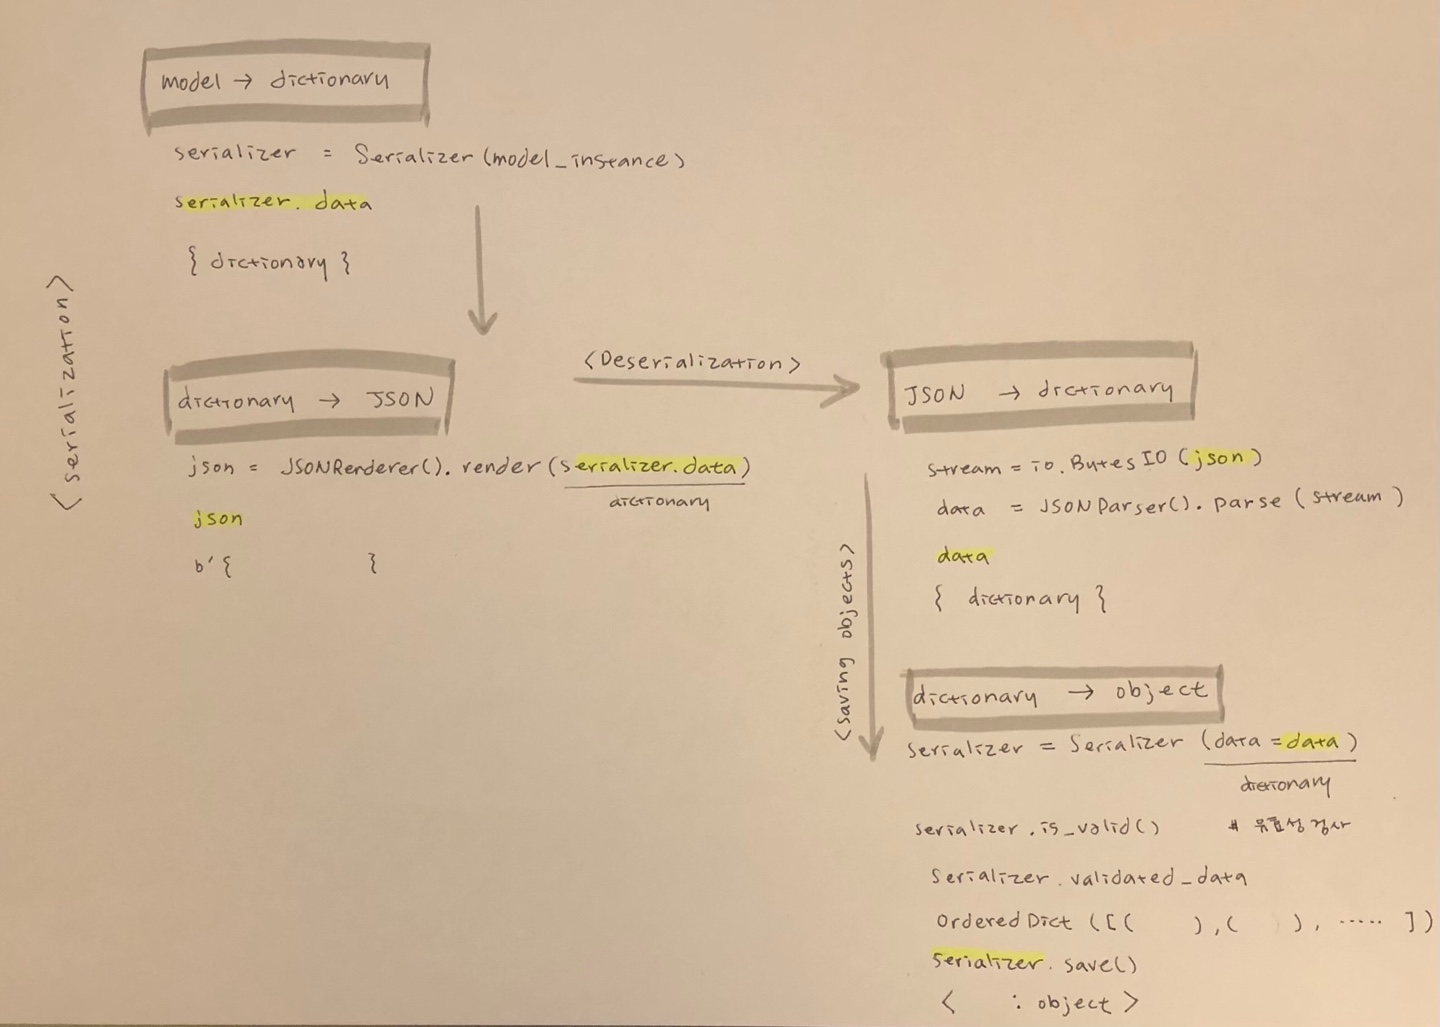 model → dictionary
serializer = Serializer (model_instance)
serializer. data
{ dictionary }
<serialization>
dictionary → JSON
json = JSONRenderer(). render (serializer.data)
dictionary
json
b'{ }
<Deserialization>
JSON → dictionary
stream = io.BytesIO (json)
data = JSONParser(). parse (stream)
data
{ dictionary }
<saving objects>
dictionary → object
serializer = Serializer (data = data)
dictionary
serializer .is_valid() # 유효성 검사
Serializer .validated_data
OrderedDict ([( ),( ), ..... ])
Serializer. save()
< : object >